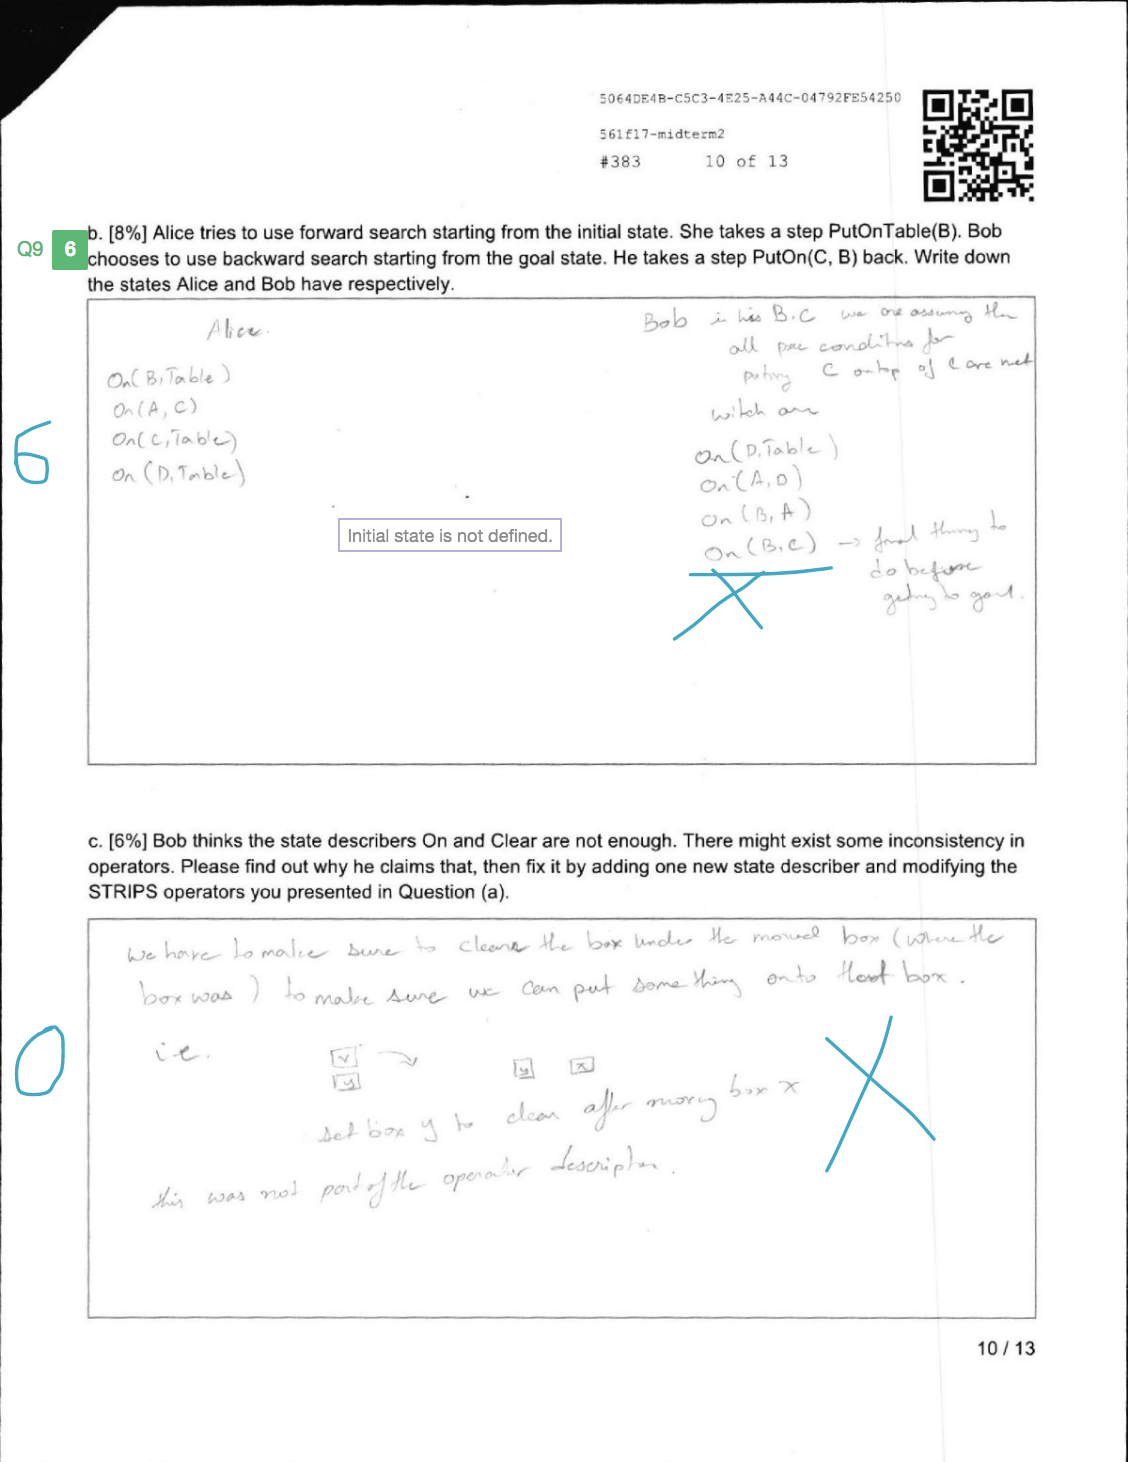 5064DE4B-C5C3-4E25-A44C-04792FE54250
561f17-midterm2
#383 10 of 13
Q9 6
b. [8%] Alice tries to use forward search starting from the initial state. She takes a step PutOnTable(B). Bob
chooses to use backward search starting from the goal state. He takes a step PutOn(C, B) back. Write down
the states Alice and Bob have respectively.
Alice.
On(B,Table)
On(A, C)
On(C,Table)
On (D,Table)
6
Bob in his B.C we are assuming the
all pre conditions for
puting C on top of C are met
witch are
On(D,Table)
On(A,D)
On(B,A)
On(B,C) → final thing to
do before
geting to goal.
Initial state is not defined.
c. [6%] Bob thinks the state describers On and Clear are not enough. There might exist some inconsistency in
operators. Please find out why he claims that, then fix it by adding one new state describer and modifying the
STRIPS operators you presented in Question (a).
we have to make sure to cleare the box under the moved box (where the
box was) to make sure we can put something onto that box.
0
i.e.
y
y x
set box y to clear after moving box x
this was not part of the operator description.
10 / 13